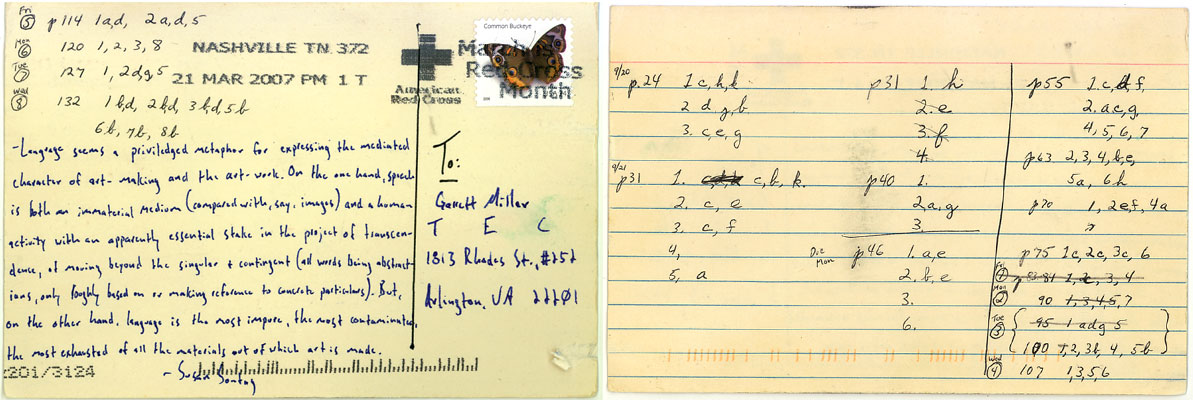 Fri
5 p114 1a,d, 2a,d,5
Mon
6 120 1, 2, 3, 8
Tue
7 127 1, 2dg 5
Wed
8 132 1 b,d, 2 b,d, 3 b,d, 5 b
6b, 7b, 8b
NASHVILLE TN 372
21 MAR 2007 PM 1 T
American
Red Cross
Red Cross
Month
Common Buckeye
- Language seems a priviledged metaphor for expressing the mediated
character of art-making and the art-work. On the one hand, speech
is both an immaterial medium (compared with, say, images) and a human
activity with an apparently essential stake in the project of transcen-
dence, of moving beyond the singular + contingent (all words being abstract-
ions, only roughly based on or making reference to concrete particulars). But,
on the other hand, language is the most impure, the most contaminated,
the most exhausted of all the materials out of which art is made.
- Susan Sontag
To:
Garrett Miller
T E C
1813 Rhodes St., #252
Arlington, VA 22201
2201/3124
9/20
p.24 1 c, h, k
2 d, g, b
3. c, e, g
9/21
p31 1. c, b, k.
2. c, e
3. c, f
4,
5, a
p31 1. h
2. e
3. f
4.
p40 1.
2 a, g
3.
Dic
Mon
p46 1. a, e
2. b, e
3.
6.
p55 1 c, d, f,
2. a c, g,
4, 5, 6, 7
p63 2, 3, 4, b, e,
5a, 6h
p70 1, 2 e, f, 4a
p75 1c, 2c, 3c, 6
Fri
1 83-84 1, 2, 3, 4
Mon
2 90 1, 3, 4, 5, 7
Tue
3 95 1 adg 5
100 1, 2, 3b, 4, 5b
Wed
4 107 1, 3, 5, 6